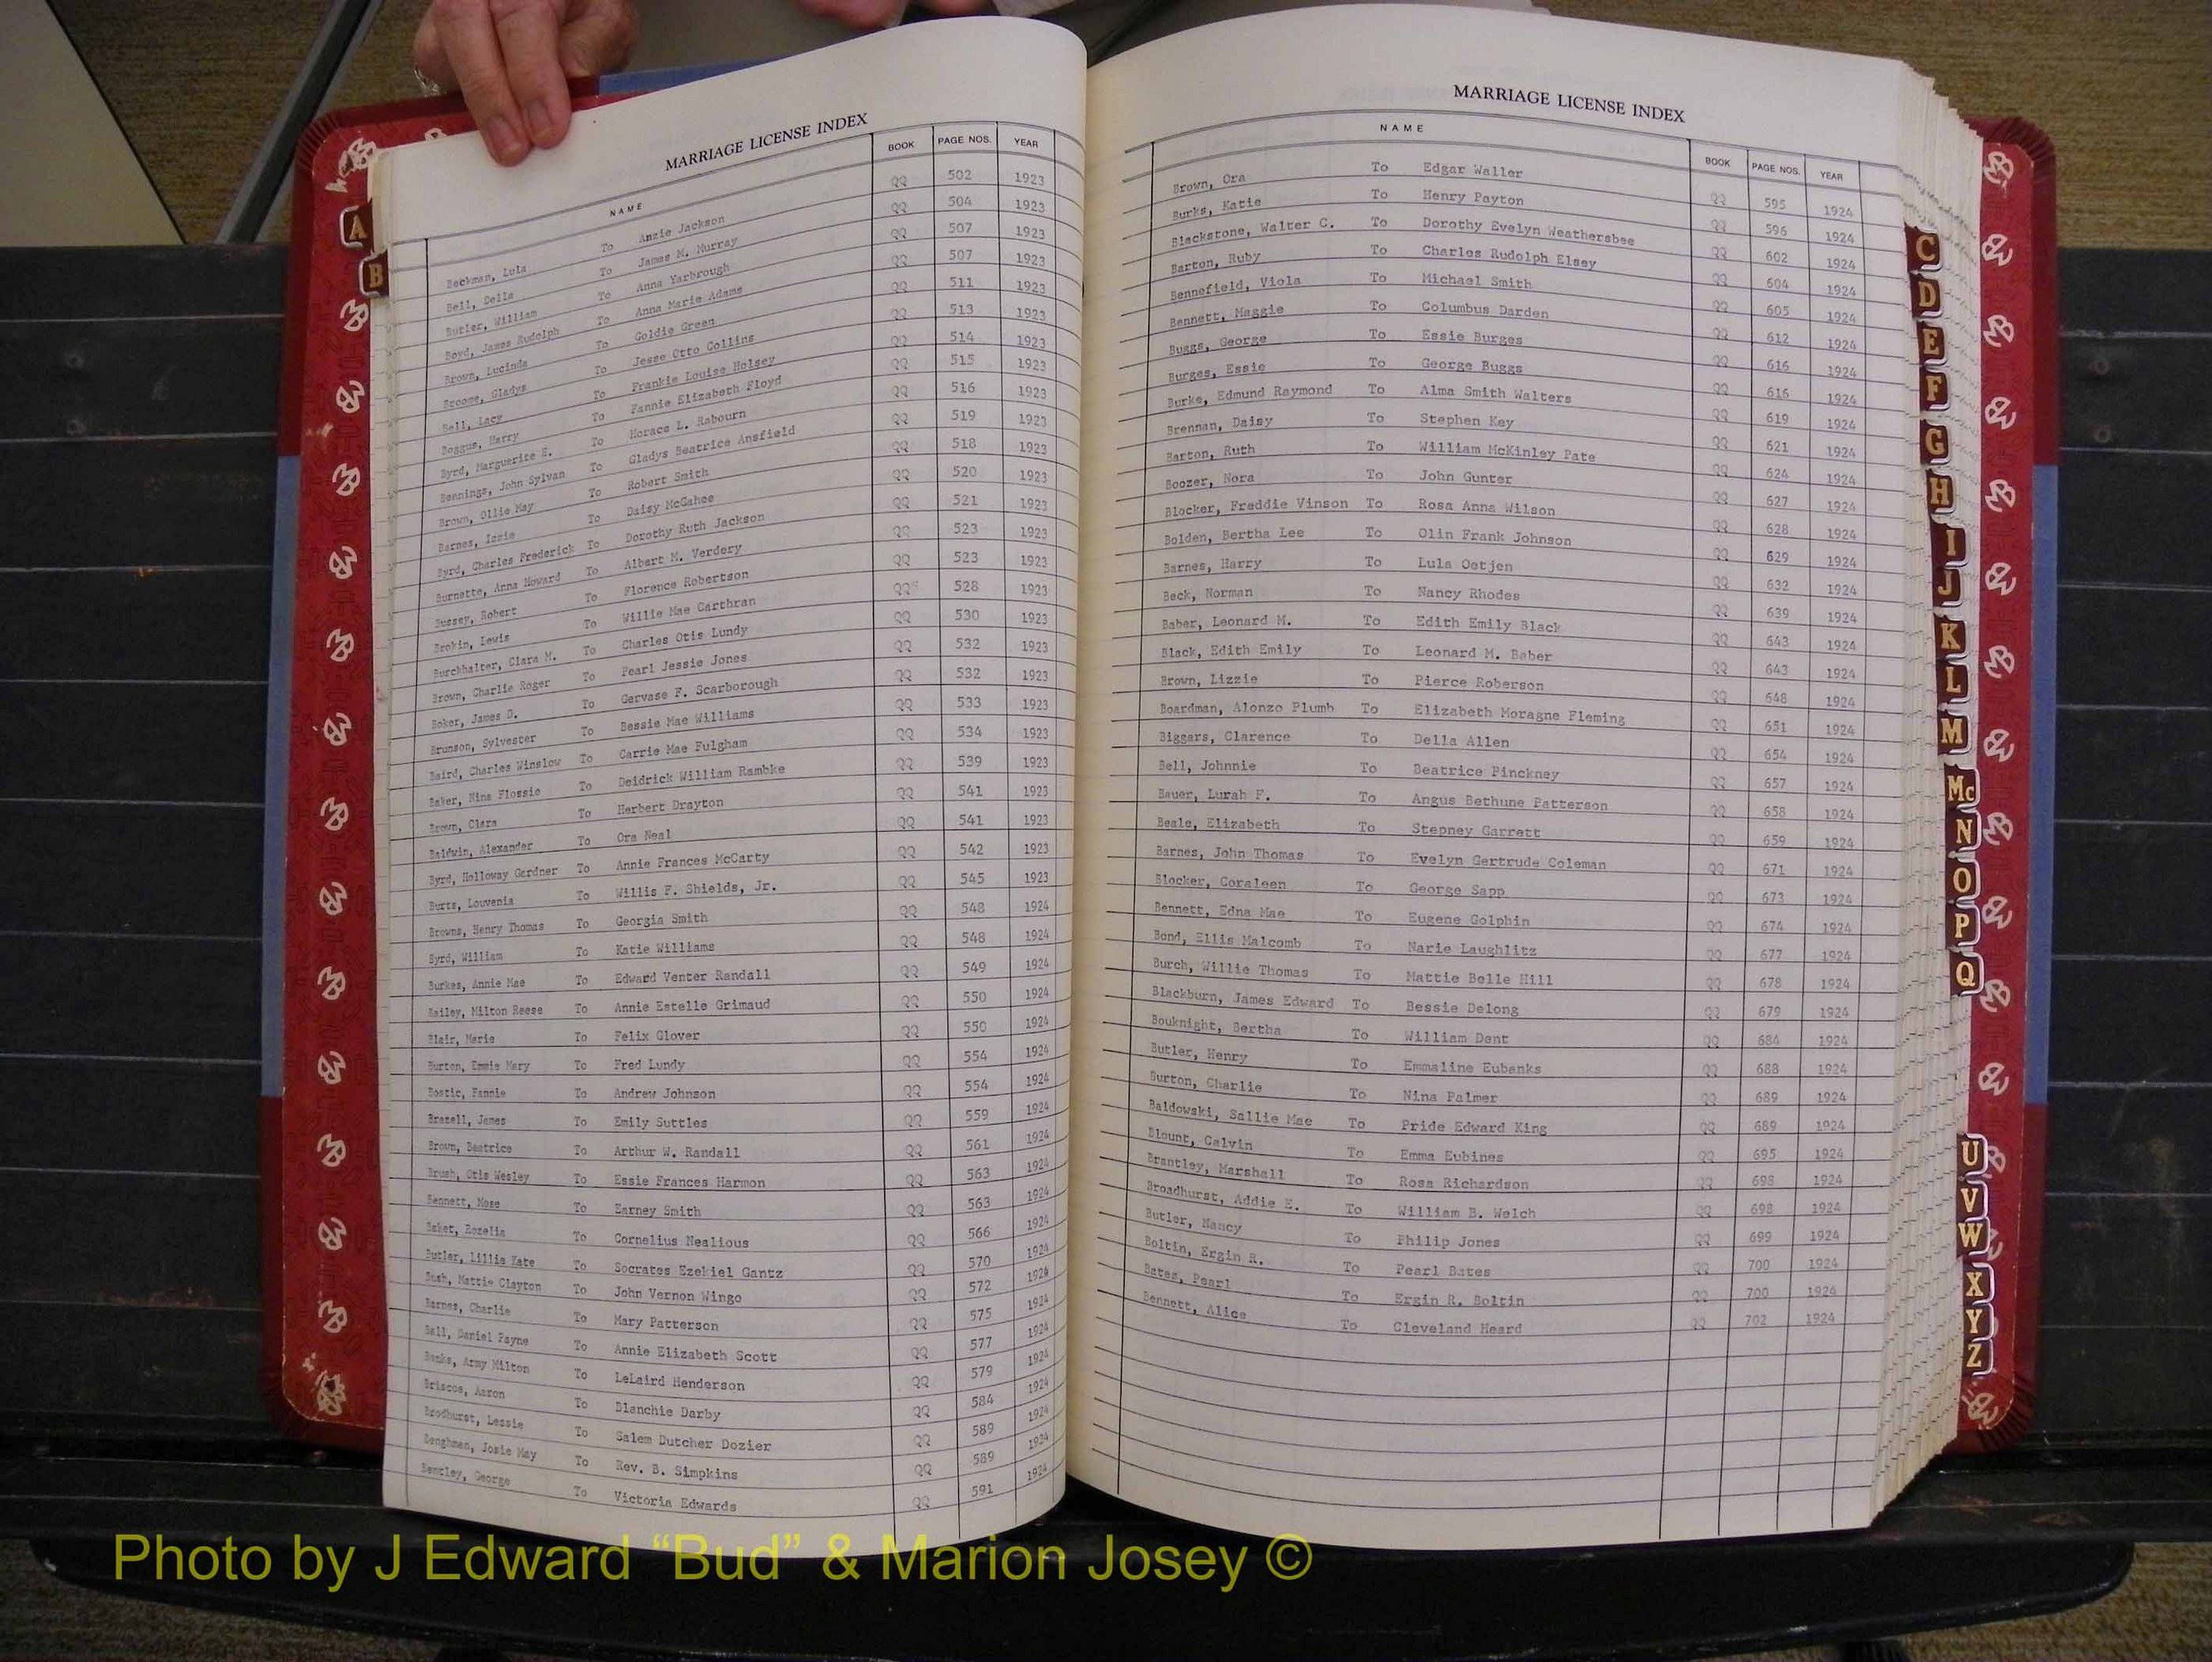 MARRIAGE LICENSE INDEX
NAME BOOK PAGE NOS. YEAR
Beckman, Lula To Anzie Jackson QQ 502 1923
Bell, Della To James M. Murray QQ 504 1923
Butler, William To Anna Yarbrough QQ 507 1923
Boyd, James Rudolph To Anna Marie Adams QQ 507 1923
Brown, Lucinda To Goldie Green QQ 511 1923
Broome, Gladys To Jesse Otto Collins QQ 513 1923
Bell, Lacy To Frankie Louise Holsey QQ 514 1923
Boggus, Harry To Fannie Elizabeth Floyd QQ 515 1923
Byrd, Marguerite E. To Horace L. Rabourn QQ 516 1923
Bennings, John Sylvan To Gladys Beatrice Ansfield QQ 519 1923
Brown, Ollie May To Robert Smith QQ 518 1923
Barnes, Izzie To Daisy McGahee QQ 520 1923
Byrd, Charles Frederick To Dorothy Ruth Jackson QQ 521 1923
Burnette, Anna Howard To Albert M. Verdery QQ 523 1923
Bussey, Robert To Florence Robertson QQ 523 1923
Brokin, Lewis To Willie Mae Carthran QQ 528 1923
Burckhalter, Clara M. To Charles Otis Lundy QQ 530 1923
Brown, Charlie Roger To Pearl Jessie Jones QQ 532 1923
Boker, James D. To Gervase F. Scarborough QQ 532 1923
Brunson, Sylvester To Bessie Mae Williams QQ 533 1923
Baird, Charles Winslow To Carrie Mae Fulgham QQ 534 1923
Baker, Nina Flossie To Deidrick William Rambke QQ 539 1923
Brown, Clara To Herbert Drayton QQ 541 1923
Baldwin, Alexander To Ora Neal QQ 541 1923
Byrd, Holloway Gardner To Annie Frances McCarty QQ 542 1923
Burts, Louvenia To Willis F. Shields, Jr. QQ 545 1923
Browns, Henry Thomas To Georgia Smith QQ 548 1924
Byrd, William To Katie Williams QQ 548 1924
Burkes, Annie Mae To Edward Venter Randall QQ 549 1924
Bailey, Milton Reese To Annie Estelle Grimaud QQ 550 1924
Blair, Marie To Felix Glover QQ 550 1924
Burton, Emmie Mary To Fred Lundy QQ 554 1924
Bostic, Fannie To Andrew Johnson QQ 554 1924
Brazell, James To Emily Suttles QQ 559 1924
Brown, Beatrice To Arthur W. Randall QQ 561 1924
Brush, Otis Wesley To Essie Frances Harmon QQ 563 1924
Bennett, Mose To Earney Smith QQ 563 1924
Baket, Rozelia To Cornelius Nealious QQ 566 1924
Butler, Lillie Kate To Socrates Ezekiel Gantz QQ 570 1924
Bush, Mattie Clayton To John Vernon Wingo QQ 572 1924
Barnes, Charlie To Mary Patterson QQ 575 1924
Ball, Daniel Payne To Annie Elizabeth Scott QQ 577 1924
Banks, Army Milton To LeLaird Henderson QQ 579 1924
Briscoe, Aaron To Blanchie Darby QQ 584 1924
Brodhurst, Lessie To Salem Dutcher Dozier QQ 589 1924
Benghman, Josie May To Rev. B. Simpkins QQ 589 1924
Bentley, George To Victoria Edwards QQ 591 1924
MARRIAGE LICENSE INDEX
NAME BOOK PAGE NOS. YEAR
Brown, Ora To Edgar Waller QQ 595 1924
Burks, Katie To Henry Payton QQ 596 1924
Blackstone, Walter C. To Dorothy Evelyn Weathersbee QQ 602 1924
Barton, Ruby To Charles Rudolph Elsey QQ 604 1924
Bennefield, Viola To Michael Smith QQ 605 1924
Bennett, Maggie To Columbus Darden QQ 612 1924
Buggs, George To Essie Burges QQ 616 1924
Burges, Essie To George Buggs QQ 616 1924
Burke, Edmund Raymond To Alma Smith Walters QQ 619 1924
Brennan, Daisy To Stephen Key QQ 621 1924
Barton, Ruth To William McKinley Pate QQ 624 1924
Boozer, Nora To John Gunter QQ 627 1924
Blocker, Freddie Vinson To Rosa Anna Wilson QQ 628 1924
Bolden, Bertha Lee To Olin Frank Johnson QQ 629 1924
Barnes, Harry To Lula Oetjen QQ 632 1924
Beck, Norman To Nancy Rhodes QQ 639 1924
Baber, Leonard M. To Edith Emily Black QQ 643 1924
Black, Edith Emily To Leonard M. Baber QQ 643 1924
Brown, Lizzie To Pierce Roberson QQ 648 1924
Boardman, Alonzo Plumb To Elizabeth Moragne Fleming QQ 651 1924
Biggars, Clarence To Della Allen QQ 654 1924
Bell, Johnnie To Beatrice Pinckney QQ 657 1924
Bauer, Lurah F. To Angus Bethune Patterson QQ 658 1924
Beale, Elizabeth To Stepney Garrett QQ 659 1924
Barnes, John Thomas To Evelyn Gertrude Coleman QQ 671 1924
Blocker, Coraleen To George Sapp QQ 673 1924
Bennett, Edna Mae To Eugene Golphin QQ 674 1924
Bond, Ellis Malcomb To Narie Laughlitz QQ 677 1924
Burch, Willie Thomas To Mattie Belle Hill QQ 678 1924
Blackburn, James Edward To Bessie Delong QQ 679 1924
Bouknight, Bertha To William Dent QQ 684 1924
Butler, Henry To Emmaline Eubanks QQ 688 1924
Burton, Charlie To Nina Palmer QQ 689 1924
Baldowski, Sallie Mae To Pride Edward King QQ 689 1924
Blount, Calvin To Emma Eubines QQ 695 1924
Brantley, Marshall To Rosa Richardson QQ 698 1924
Broadhurst, Addie E. To William B. Welch QQ 698 1924
Butler, Nancy To Philip Jones QQ 699 1924
Boltin, Ergin R. To Pearl Bates QQ 700 1924
Bates, Pearl To Ergin R. Boltin QQ 700 1924
Bennett, Alice To Cleveland Heard QQ 702 1924
A
B
C
D
E
F
G
H
I
J
K
L
M
Mc
N
O
P
Q
U
V
W
X
Y
Z
Photo by J Edward “Bud” & Marion Josey ©